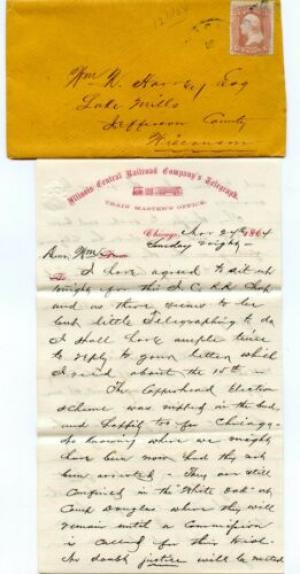 Wm R. Harvey Esq
Lake Mills
Jefferson County
Wisconsin
Illinois Central Railroad Company's Telegraph,
TRAIN MASTER'S OFFICE.
Chicago, Nov 24th 1864
Sunday Night
Wm
I have agreed to sit up
tonight for this I.C.RR chap
and as there seems to be
but little Telegraphing to do
I shall have ample time
to reply to your letter which
I recd about the 15th -
The Copperhead Election
scheme was nipped in the bud,
and happily too for Chicago -
No knowing where we might
have been now had they not
been arrested - They are still
confined in the "White Oak" at
Camp Douglas where they will
remain until a Commission
is called for their trial.
No doubt justice will be meted